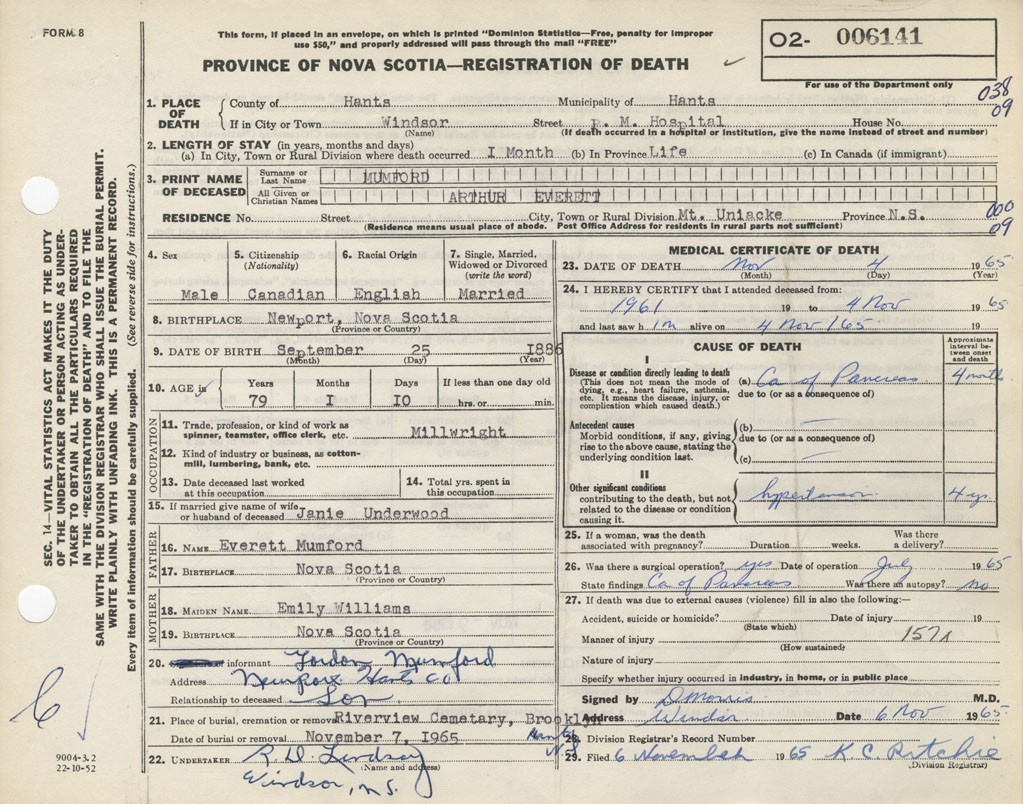 FORM 8
This form, if placed in an envelope, on which is printed "Dominion Statistics—Free, penalty for improper
use $50," and properly addressed will pass through the mail "FREE"
PROVINCE OF NOVA SCOTIA—REGISTRATION OF DEATH
02- 006141
For use of the Department only
038
09
1. PLACE OF DEATH
County of Hants Municipality of Hants
If in City or Town Windsor Street P. M. Hospital House No.
(Name) (If death occurred in a hospital or institution, give the name instead of street and number)
2. LENGTH OF STAY (in years, months and days)
(a) In City, Town or Rural Division where death occurred I Month (b) In Province Life (c) In Canada (if immigrant)
3. PRINT NAME OF DECEASED
Surname or Last Name MUMFORD
All Given or Christian Names ARTHUR EVERETT
RESIDENCE No. Street City, Town or Rural Division Mt. Uniacke Province N.S.
(Residence means usual place of abode. Post Office Address for residents in rural parts not sufficient)
000
09
4. Sex Male
5. Citizenship (Nationality) Canadian
6. Racial Origin English
7. Single, Married, Widowed or Divorced (write the word) Married
8. BIRTHPLACE Newport, Nova Scotia
(Province or Country)
9. DATE OF BIRTH September 25 1886
(Month) (Day) (Year)
10. AGE is Years Months Days If less than one day old
79 I I0 hrs. or min.
OCCUPATION
11. Trade, profession, or kind of work as spinner, teamster, office clerk, etc. Millwright
12. Kind of industry or business, as cotton-mill, lumbering, bank, etc.
13. Date deceased last worked at this occupation
14. Total yrs. spent in this occupation
15. If married give name of wife or husband of deceased Janie Underwood
FATHER
16. NAME Everett Mumford
17. BIRTHPLACE Nova Scotia
(Province or Country)
MOTHER
18. MAIDEN NAME Emily Williams
19. BIRTHPLACE Nova Scotia
(Province or Country)
20. informant Gordon Mumford
Address Newport Hants Co
Relationship to deceased Son
21. Place of burial, cremation or removal Riverview Cemetary, Brooklyn
Date of burial or removal November 7, 1965 Hants N.S
22. UNDERTAKER R D Lindsay
(Name and address)
Windsor, N.S.
MEDICAL CERTIFICATE OF DEATH
23. DATE OF DEATH Nov 4 1965
(Month) (Day) (Year)
24. I HEREBY CERTIFY that I attended deceased from:
1961 19 to 4 Nov 1965
and last saw him alive on 4 Nov / 65 19
CAUSE OF DEATH
Approximate interval between onset and death
I
Disease or condition directly leading to death
(This does not mean the mode of dying, e.g., heart failure, asthenia, etc. It means the disease, injury, or complication which caused death.)
(a) Ca of Pancreas 4 months
due to (or as a consequence of)
Antecedent causes
Morbid conditions, if any, giving rise to the above cause, stating the underlying condition last.
(b) —
due to (or as a consequence of)
(c) —
II
Other significant conditions
contributing to the death, but not related to the disease or condition causing it.
hypertension 4 yrs
25. If a woman, was the death associated with pregnancy? Duration weeks. Was there a delivery?
26. Was there a surgical operation? yes Date of operation July 1965
State findings Ca of Pancreas Was there an autopsy? no
27. If death was due to external causes (violence) fill in also the following:—
Accident, suicide or homicide? Date of injury 19
(State which)
Manner of injury
(How sustained)
Nature of injury
Specify whether injury occurred in industry, in home, or in public place
Signed by D Morris M.D.
Address Windsor Date 6 Nov 1965
28. Division Registrar's Record Number
29. Filed 6 November 1965 K. C. Ritchie
(Division Registrar)
SEC. 14—VITAL STATISTICS ACT MAKES IT THE DUTY
OF THE UNDERTAKER OR PERSON ACTING AS UNDER-
TAKER TO OBTAIN ALL THE PARTICULARS REQUIRED
IN THE "REGISTRATION OF DEATH" AND TO FILE THE
SAME WITH THE DIVISION REGISTRAR WHO SHALL ISSUE THE BURIAL PERMIT.
WRITE PLAINLY WITH UNFADING INK. THIS IS A PERMANENT RECORD.
Every item of information should be carefully supplied. (See reverse side for instructions.)
9004-3.2
22-10-52